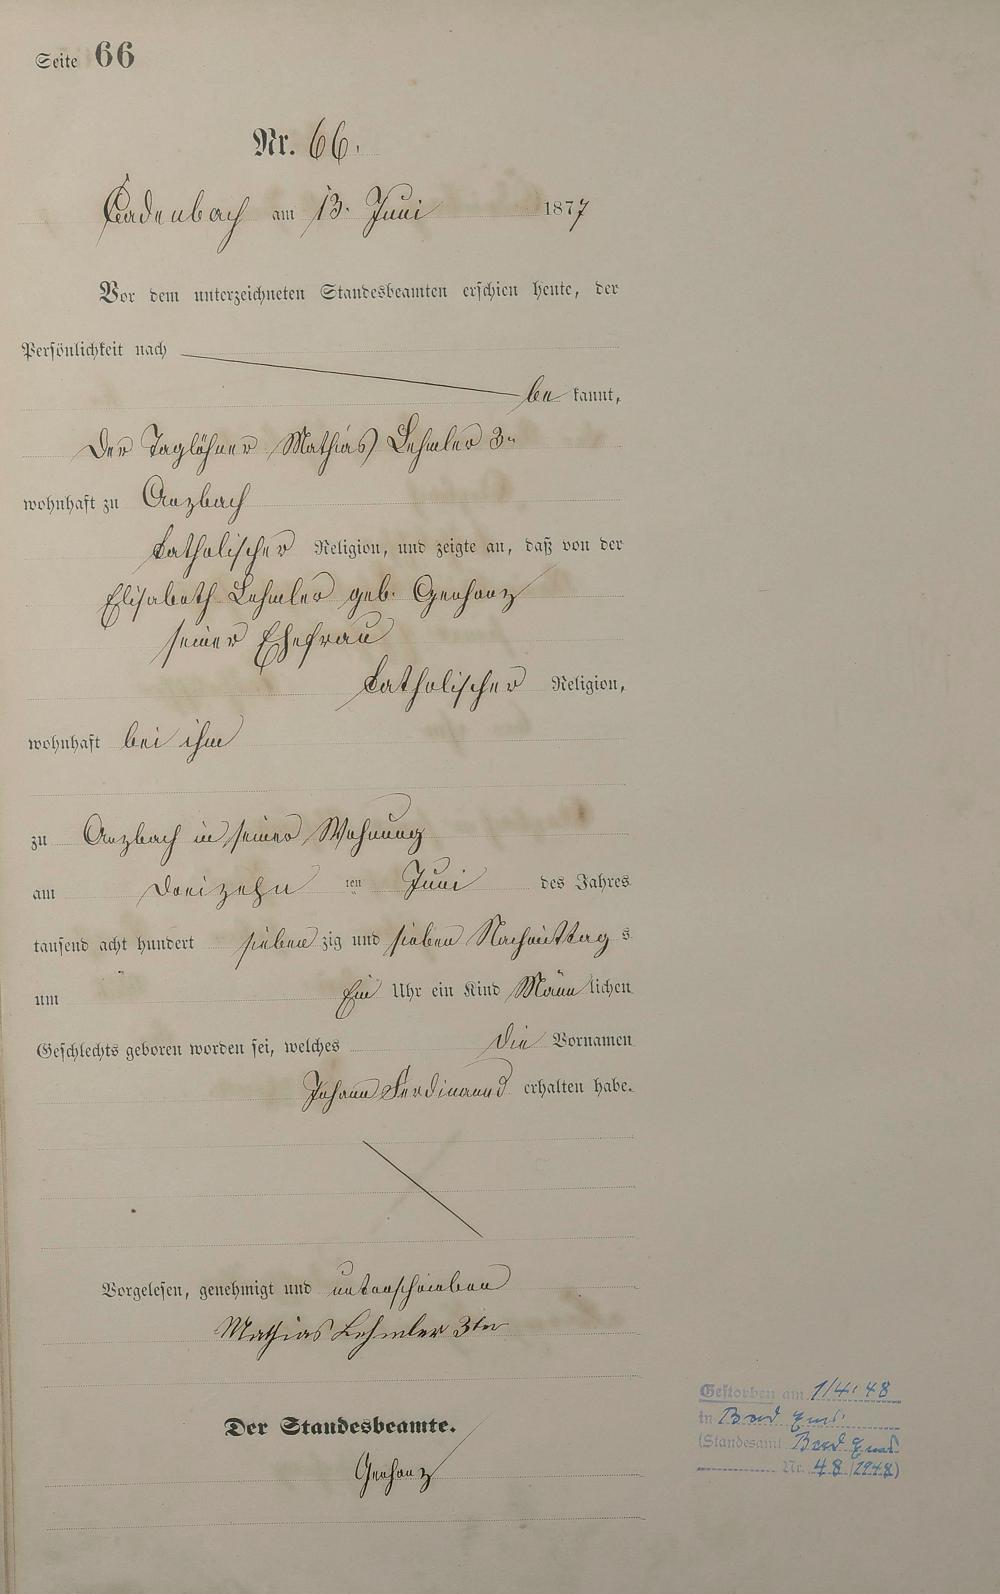 Seite 66
Nr. 66.
Cadenbach am 13. Juni 1877
Vor dem unterzeichneten Standesbeamten erschien heute, der
Persönlichkeit nach
be kannt,
der Taglöhner Mathias Lehmler 3n
wohnhaft zu Arzbach
katholischer Religion, und zeigte an, daß von der
Elisabeth Lehmler geb. Gerharz
seiner Ehefrau
katholischer Religion,
wohnhaft bei ihm
zu Arzbach in seiner Wohnung
am dreizehn ten Juni des Jahres
tausend acht hundert sieben zig und sieben Nachmittag s
um Ein Uhr ein Kind Männ lichen
Geschlechts geboren worden sei, welches die Vornamen
Johann Ferdinand erhalten habe.
Vorgelesen, genehmigt und unterschrieben
Mathias Lehmler 3ter
Der Standesbeamte.
Gerharz
Gestorben am 1/4. 48
in Bad Ems.
(Standesamt Bad Ems
Nr. 48 (1948)